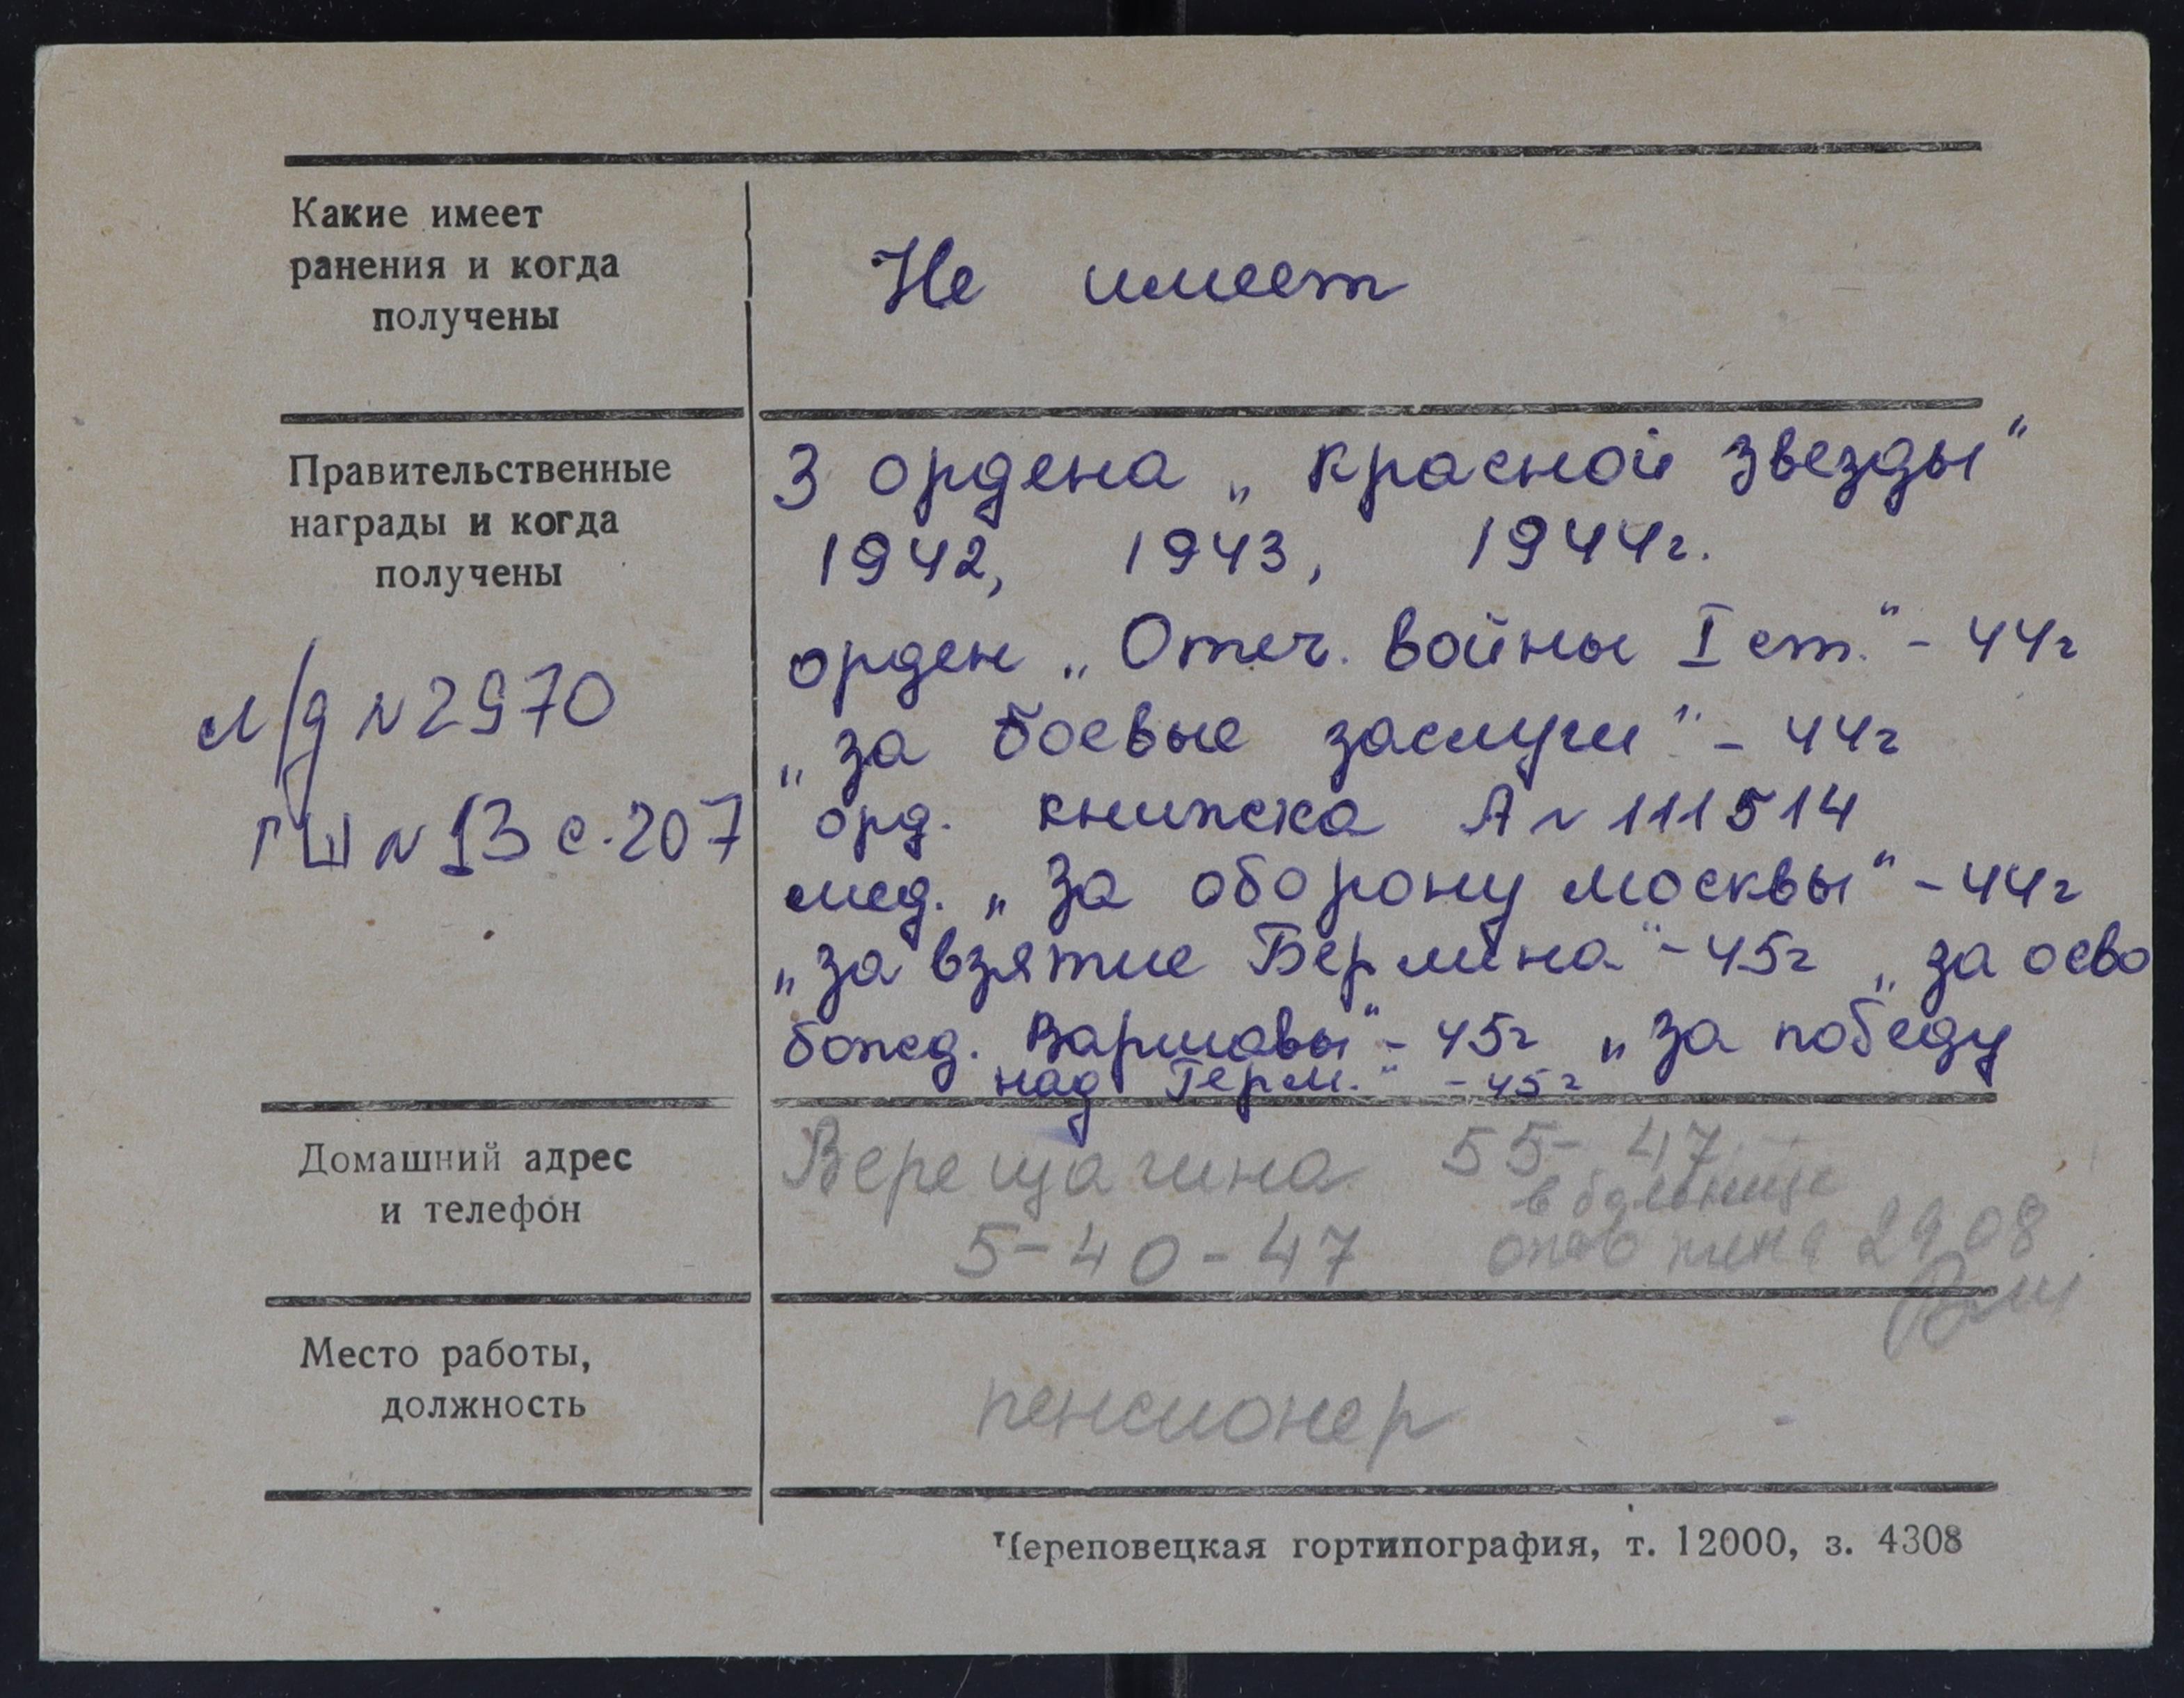 Какие имеет
ранения и когда
получены
Не имеет
Правительственные
награды и когда
получены
л/д N 2970
ГШ N 13 с. 207
3 ордена „красной звезды"
1942, 1943, 1944г.
орден „Отеч. войны I ст." - 44г
„за боевые заслуги" - 44г
орд. книжка А N 111514
мед. „За оборону москвы" - 44г
„за взятие Берлина" - 45г „за осво
божд. Варшавы" - 45г „за победу
над Герм." - 45г
Домашний адрес
и телефон
Верещагина 55-47
в больнице
5-40-47
жена 29 08
Место работы,
должность
пенсионер
Череповецкая гортипография, т. 12000, з. 4308